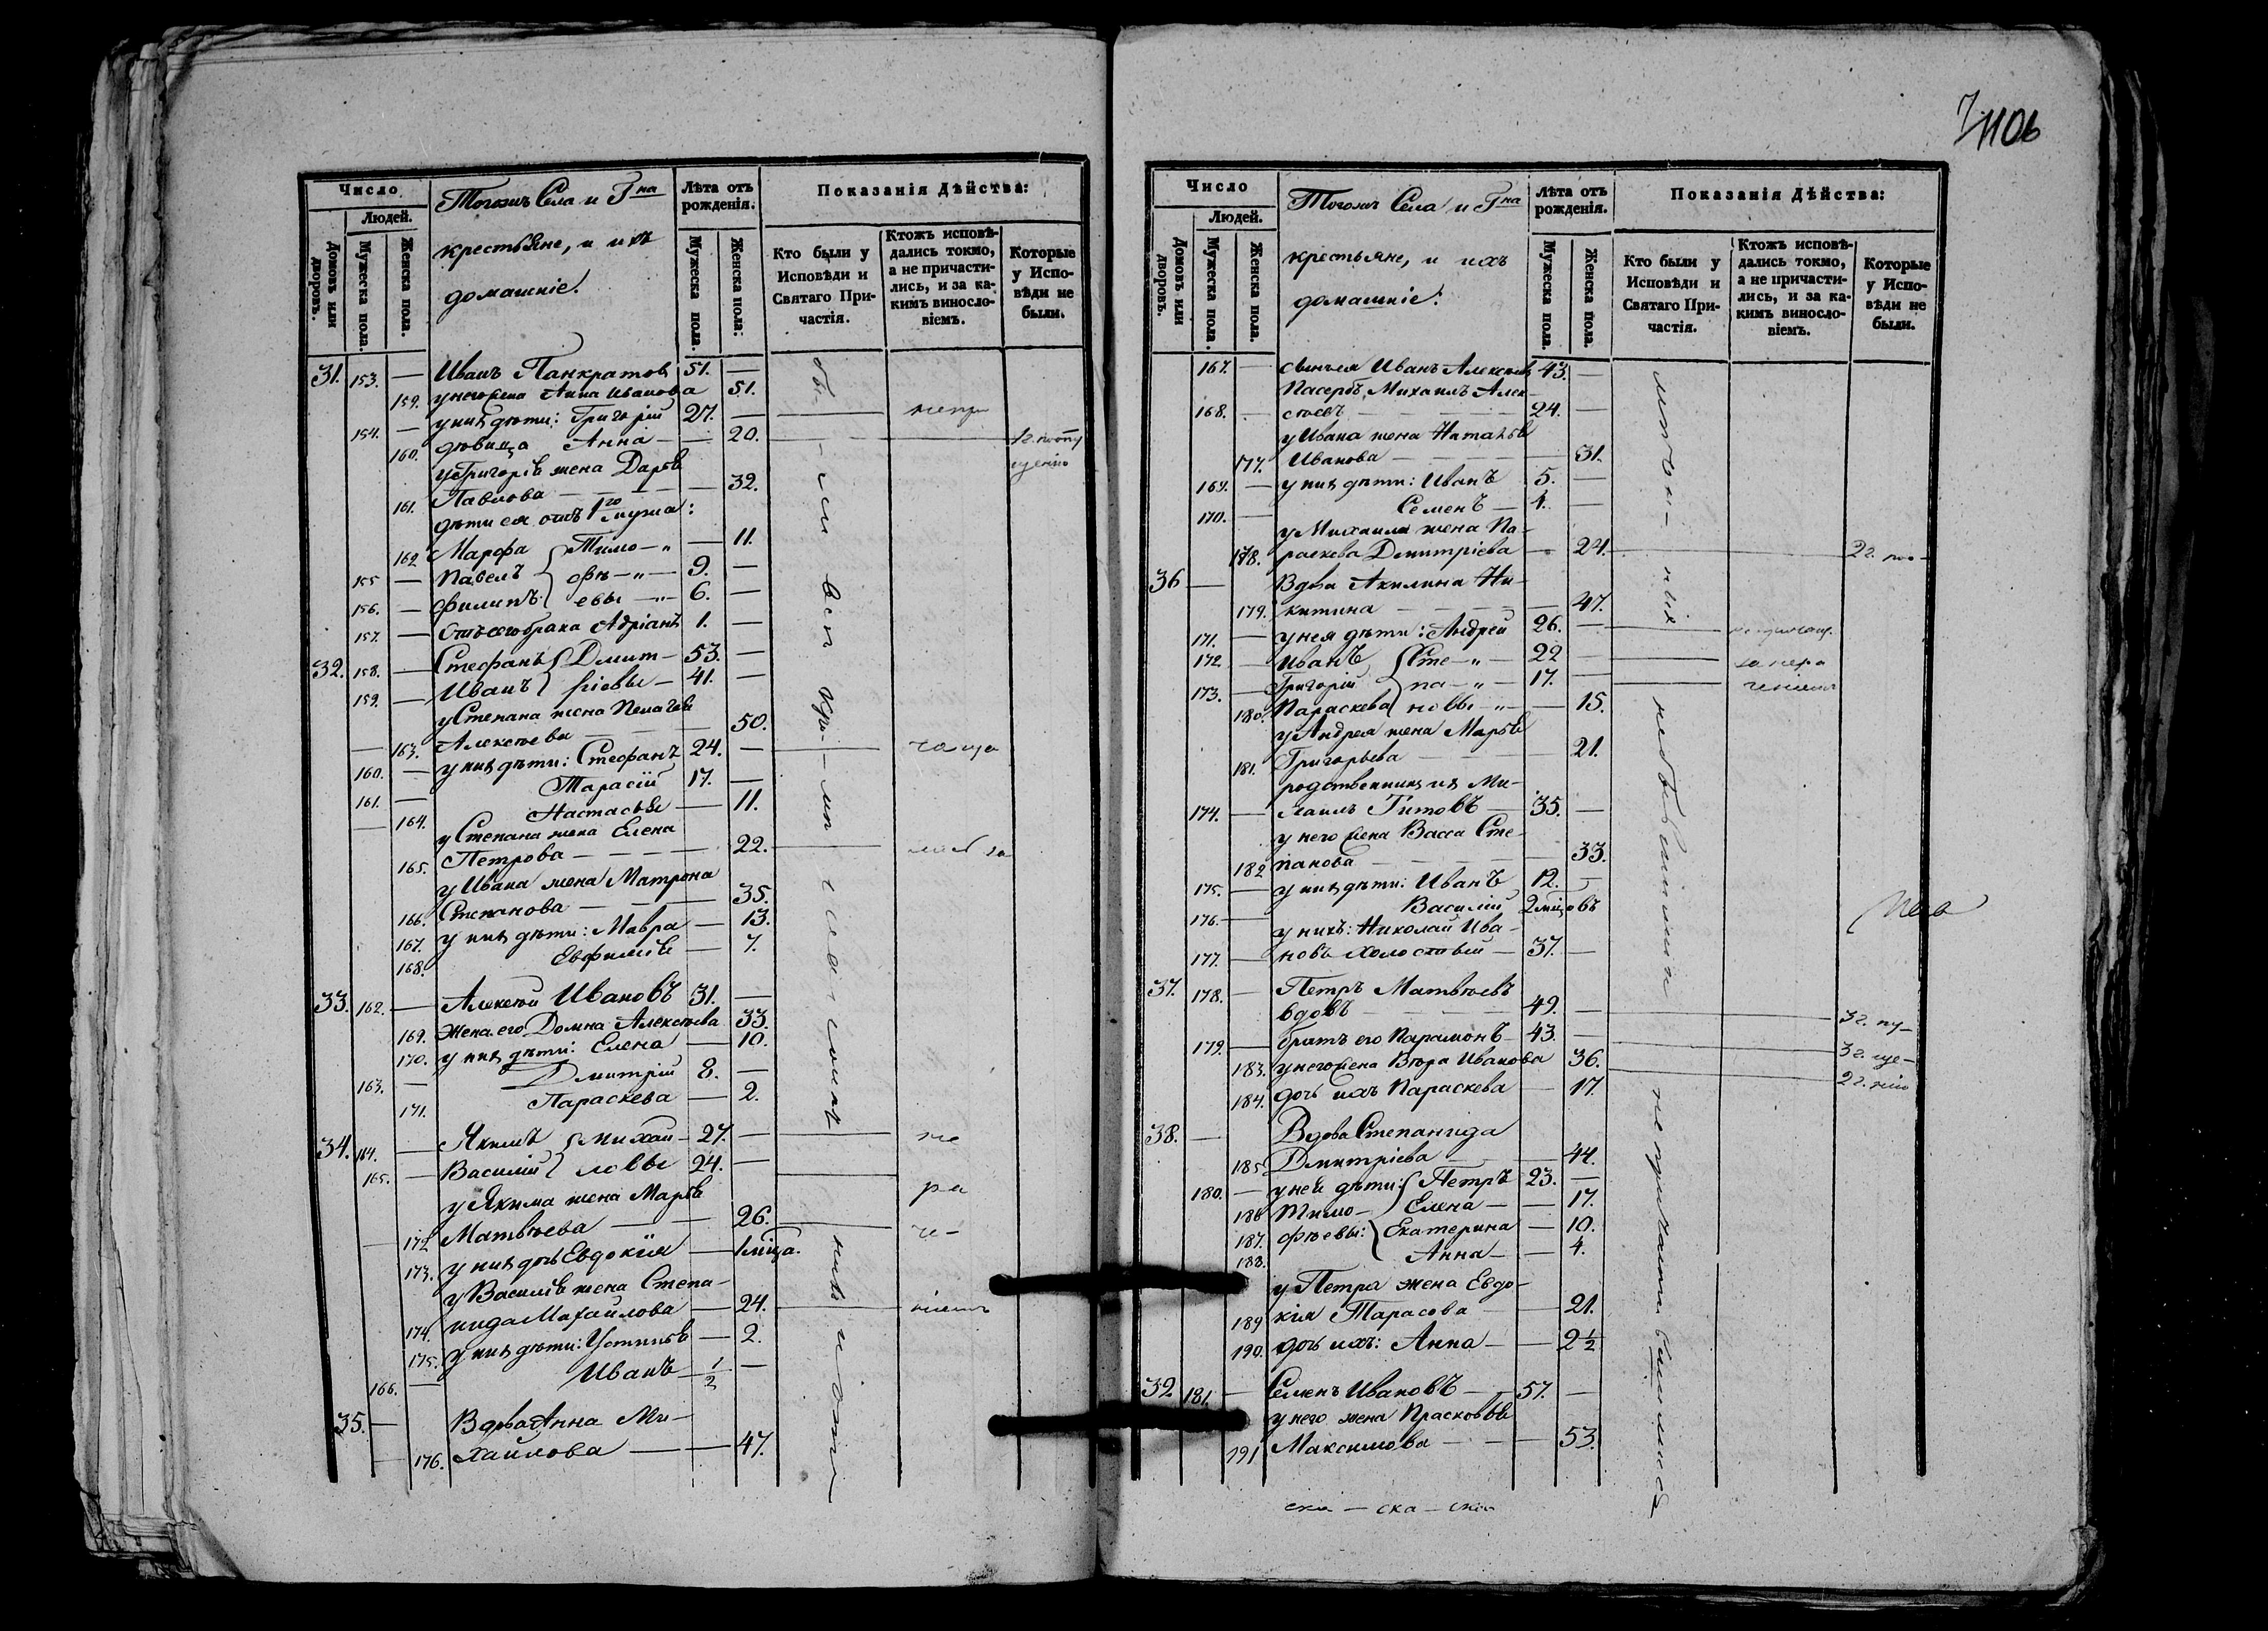 1106
Число
Тогожъ Села и Гна
Лѣта отъ рожденія.
Показанія Дѣйства:
Людей.
крестьяне, и ихъ
домашніе.
Домовъ или дворовъ.
Мужеска пола.
Женска пола.
Мужеска пола.
Женска пола:
Кто были у Исповѣди и Святаго Причастія.
Ктожъ исповѣдались токмо, а не причастились, и за какимъ винословіемъ.
Которые у Исповѣди не были.
31. 153. — Иванъ Панкратовъ 51. —
159. у него жена Анна Иванова 51.
154. — у нихъ дѣти: Григорій 27. —
160. дѣвица Анна — 20.
у Григорія жена Дарья
161. Павлова — 32.
дѣти ея отъ 1го мужа:
162 Марфа Тимо-„ — 11.
155 — Павелъ фѣ-„ — 9. —
156. — Филипъ евы -„- 6. —
157. — Отъ сего брака Адріанъ 1. —
32. 158. — Стефанъ Дмит- 53. —
159. — Иванъ ріевы — 41. —
у Степана жена Пелагея
163. Алексѣева — 50.
160. — у нихъ дѣти: Стефанъ 24. —
161. — Тарасій 17. —
— 164. Настасья — 11.
у Степана жена Елена
165. Петрова — 22.
у Ивана жена Матрона
166. Степанова — 35.
167. у нихъ дѣти: Мавра — 13.
168. Евфимія — 7.
33. 162. — Алексѣй Ивановъ 31. —
169. Жена его Домна Алексѣева 33.
170. у нихъ дѣти: Елена — 10.
163. — Дмитрій 8. —
171. Параскева — 2.
34. 164. — Якимъ Михай- 27. —
165. — Василій ловы 24. —
у Якима жена Марья
172 Матвѣева — 26.
173. у нихъ дочь Евдокія — 1 мѣца.
у Василія жена Степа-
174. нида Михайлова — 24.
175. у нихъ дѣти: Устинья — 2.
166. — Иванъ 1/2 —
35. — Вдова Анна Ми-
176. хайлова — 47.
Число
Тогожъ Села и Гна
Лѣта отъ рожденія.
Показанія Дѣйства:
Людей.
крестьяне, и ихъ
домашніе:
Домовъ или дворовъ.
Мужеска пола.
Женска пола.
Мужеска пола.
Женска пола.
Кто были у Исповѣди и Святаго Причастія.
Ктожъ исповѣдались токмо, а не причастились, и за какимъ винословіемъ.
Которые у Исповѣди не были.
167. — Иванъ Алексѣевъ 43. —
Пасербъ Михаилъ Алек-
168. — сѣевъ — 24. —
у Ивана жена Наталья
177. Иванова — 31.
169. — у нихъ дѣти: Иванъ 5. —
170. — Семенъ — 4. —
у Михаила жена Па-
178. раскева Дмитріева — 24. 2 г. по-
36 — Вдова Акилина Ни-
179. китина — 47.
171. — у нея дѣти: Андрей 26. —
172 — Иванъ Сте-„- 22 —
173. — Григорій па-„- 17. —
180. Параскева новы -„- 15.
у Андрея жена Марья
181. Григорьева — 21.
родственникъ ихъ Ми-
174. — хаилъ Титовъ — 35. —
у него жена Васса Сте-
182 панова — 33.
175. — у нихъ дѣти: Иванъ 12. —
176. — Василій 2 мѣцовъ
у нихъ: Николай Ива-
177. — новъ холостый — 37. —
37. 178. — Петръ Матвѣевъ
вдовъ — 49. — 3 г. пу-
179. — братъ его Парамонъ 43. — 3 г. ще-
183. у него жена Вѣра Иванова 36. 2 г. нію
184. дочь ихъ Параскева — 17.
38. — Вдова Степанида
185. Дмитріева — 44.
180. — у ней дѣти: Петръ 23. —
186 Тимо- Елена — 17.
187. фѣевы: Екатерина — 10.
188. Анна — 4.
у Петра жена Евдо-
189 кія Тарасова — 21.
190. дочь ихъ: Анна — 2 1/2
39 181. — Семенъ Ивановъ — 57. —
у него жена Прасковья
191 Максимова — 53.